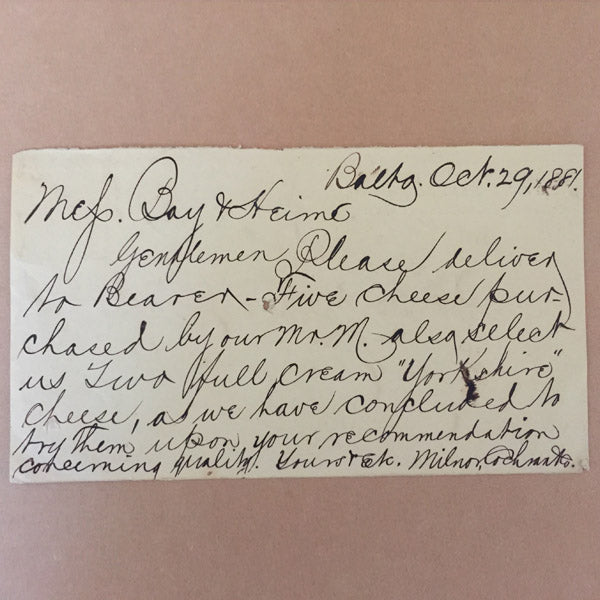 Balto. Oct. 29, 1881.
Mess. Bay & Heim
Gentlemen Please deliver
to Bearer - Five cheese pur-
chased by our Mr. M. also select
us Two full cream "Yorkshire"
cheese, as we have concluded to
try them upon your recommendation
concerning quality. Yours & Etc. Milnor,